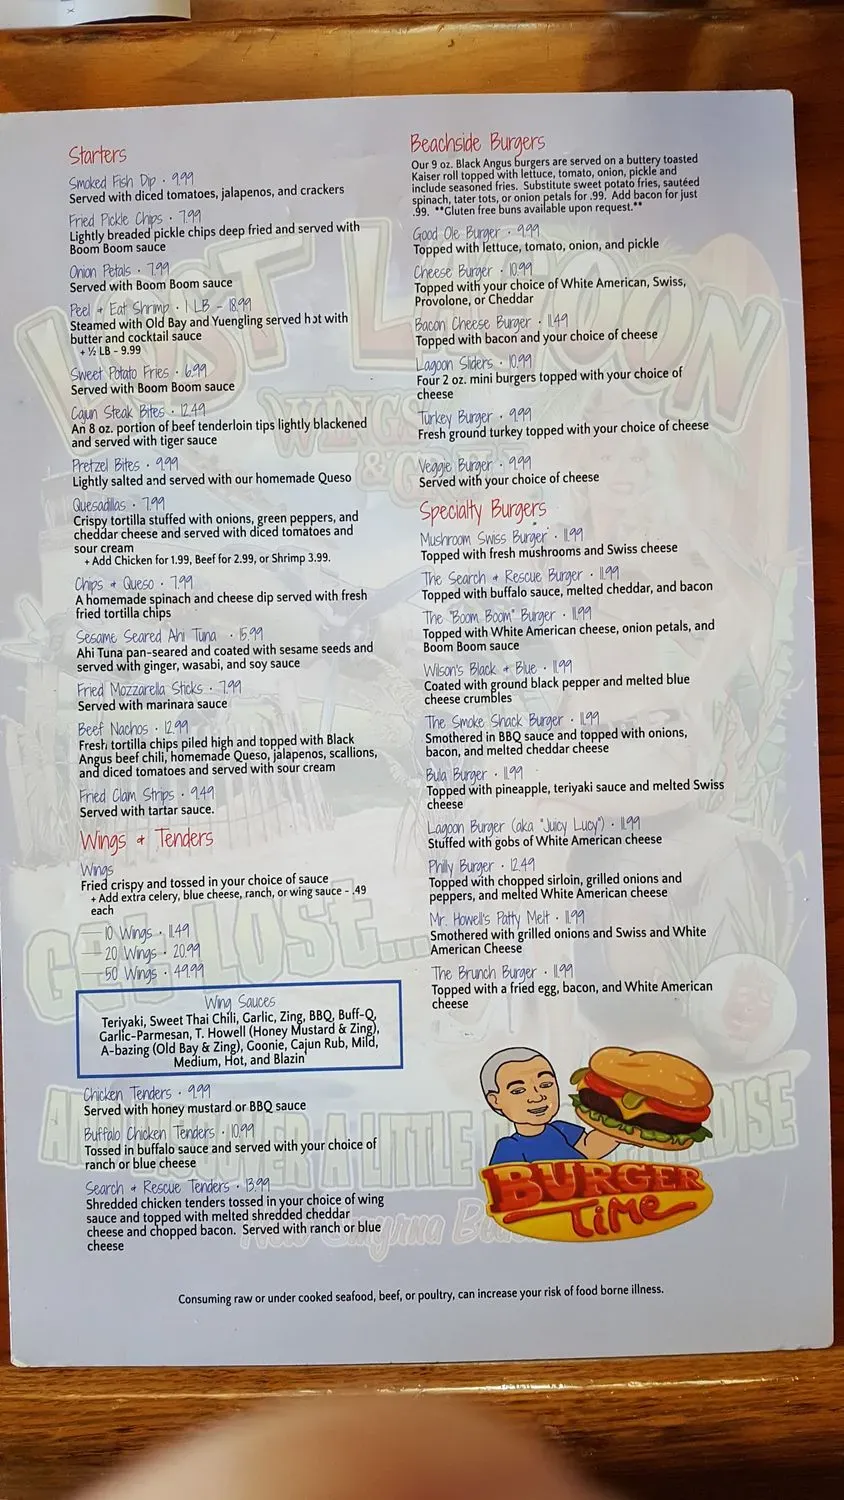 Starters
Smoked Fish Dip · 9.99
Served with diced tomatoes, jalapenos, and crackers
Fried Pickle Chips · 7.99
Lightly breaded pickle chips deep fried and served with
Boom Boom sauce
Onion Petals · 7.99
Served with Boom Boom sauce
Peel + Eat Shrimp · 1 LB - 18.99
Steamed with Old Bay and Yuengling served hot with
butter and cocktail sauce
+ ½ LB - 9.99
Sweet Potato Fries · 6.99
Served with Boom Boom sauce
Cajun Steak Bites · 12.49
An 8 oz. portion of beef tenderloin tips lightly blackened
and served with tiger sauce
Pretzel Bites · 9.99
Lightly salted and served with our homemade Queso
Quesadillas · 7.99
Crispy tortilla stuffed with onions, green peppers, and
cheddar cheese and served with diced tomatoes and
sour cream
+ Add Chicken for 1.99, Beef for 2.99, or Shrimp 3.99.
Chips + Queso · 7.99
A homemade spinach and cheese dip served with fresh
fried tortilla chips
Sesame Seared Ahi Tuna · 15.99
Ahi Tuna pan-seared and coated with sesame seeds and
served with ginger, wasabi, and soy sauce
Fried Mozzarella Sticks · 7.99
Served with marinara sauce
Beef Nachos · 12.99
Fresh tortilla chips piled high and topped with Black
Angus beef chili, homemade Queso, jalapenos, scallions,
and diced tomatoes and served with sour cream
Fried Clam Strips · 9.49
Served with tartar sauce.
Wings + Tenders
Wings
Fried crispy and tossed in your choice of sauce
+ Add extra celery, blue cheese, ranch, or wing sauce - .49
each
—10 Wings · 11.49
—20 Wings · 20.99
—50 Wings · 49.99
Wing Sauces
Teriyaki, Sweet Thai Chili, Garlic, Zing, BBQ, Buff-Q,
Garlic-Parmesan, T. Howell (Honey Mustard & Zing),
A-bazing (Old Bay & Zing), Goonie, Cajun Rub, Mild,
Medium, Hot, and Blazin'
Chicken Tenders · 9.99
Served with honey mustard or BBQ sauce
Buffalo Chicken Tenders · 10.99
Tossed in buffalo sauce and served with your choice of
ranch or blue cheese
Search + Rescue Tenders · 13.99
Shredded chicken tenders tossed in your choice of wing
sauce and topped with melted shredded cheddar
cheese and chopped bacon. Served with ranch or blue
cheese
Beachside Burgers
Our 9 oz. Black Angus burgers are served on a buttery toasted
Kaiser roll topped with lettuce, tomato, onion, pickle and
include seasoned fries. Substitute sweet potato fries, sautéed
spinach, tater tots, or onion petals for .99. Add bacon for just
.99. **Gluten free buns available upon request.**
Good Ole Burger · 9.99
Topped with lettuce, tomato, onion, and pickle
Cheese Burger · 10.99
Topped with your choice of White American, Swiss,
Provolone, or Cheddar
Bacon Cheese Burger · 11.49
Topped with bacon and your choice of cheese
Lagoon Sliders · 10.99
Four 2 oz. mini burgers topped with your choice of
cheese
Turkey Burger · 9.99
Fresh ground turkey topped with your choice of cheese
Veggie Burger · 9.99
Served with your choice of cheese
Specialty Burgers
Mushroom Swiss Burger · 11.99
Topped with fresh mushrooms and Swiss cheese
The Search + Rescue Burger · 11.99
Topped with buffalo sauce, melted cheddar, and bacon
The "Boom Boom" Burger · 11.99
Topped with White American cheese, onion petals, and
Boom Boom sauce
Wilson's Black + Blue · 11.99
Coated with ground black pepper and melted blue
cheese crumbles
The Smoke Shack Burger · 11.99
Smothered in BBQ sauce and topped with onions,
bacon, and melted cheddar cheese
Bula Burger · 11.99
Topped with pineapple, teriyaki sauce and melted Swiss
cheese
Lagoon Burger (aka "Juicy Lucy") · 11.99
Stuffed with gobs of White American cheese
Philly Burger · 12.49
Topped with chopped sirloin, grilled onions and
peppers, and melted White American cheese
Mr. Howell's Patty Melt · 11.99
Smothered with grilled onions and Swiss and White
American Cheese
The Brunch Burger · 11.99
Topped with a fried egg, bacon, and White American
cheese
BURGER
TIME
LOST LAGOON
WINGS
& GRILL
GET LOST...
A LITTLE
New Smyrna
Consuming raw or under cooked seafood, beef, or poultry, can increase your risk of food borne illness.